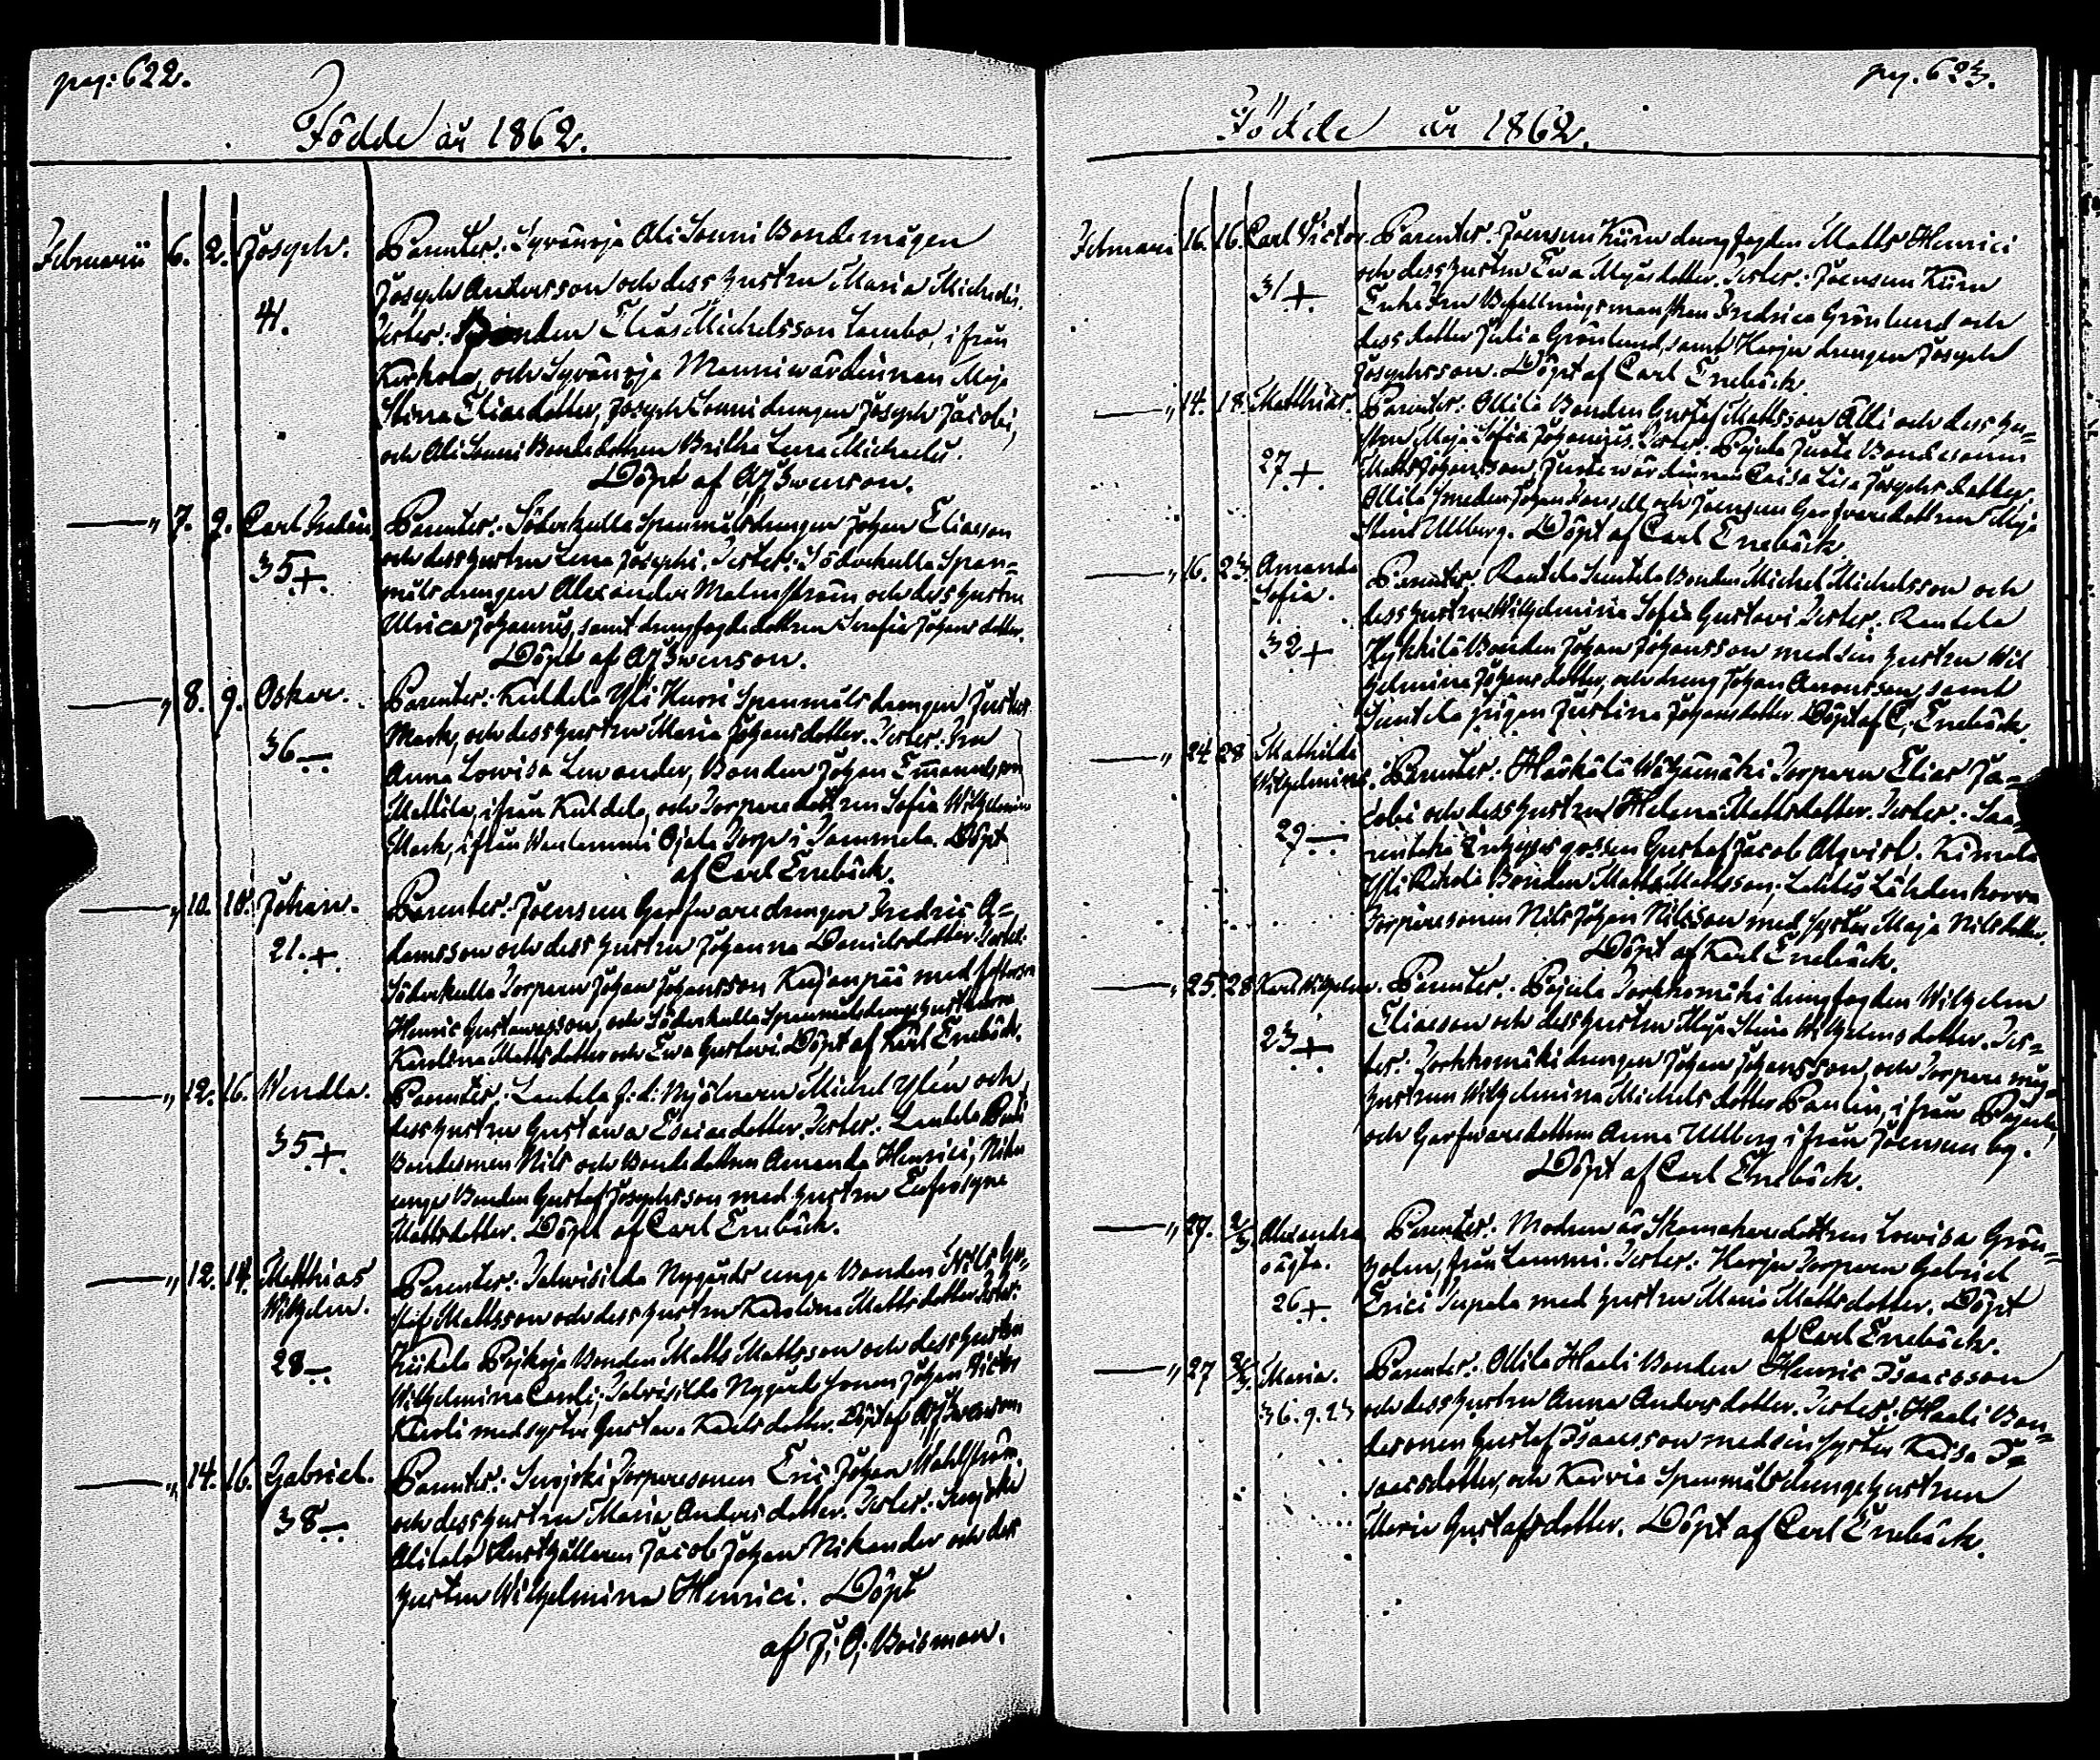 pag: 622.
Födde år 1862.
Februarii 6. 2. Joseph. Parenter: Syvänoja Ali Jouni Bondemågen
Joseph Andersson och dess hustru Maria Michelis.
41. Tester: Bonden Elias Michelsson Lembo, ifrån
och Syvänoja Manni wärdinnan Maja
Stina Eliaedotter, Joseph Jouni drengen Joseph Jacobi,
och Ali Jouni Bondedottren Britha Lena Michaelis.
Döpt af Swenson.
" 7. 9. Carl Parenter: Söderkulla Spanmålsdrengen Johan Eliasson
och dess hustru Lena Josephi. Tester: Söderkulla Span=
35+ målsdrengen Alexander Malmström och dess hustru
Ulrica Johannis, samt drengfogdedottren Serafia Johansdotter.
Döpt af Swenson.
" 8. 9. Oskar. Parenter: Kuldela Yli Kurri Spanmålsdrengen Justus
36— Mark, och dess hustru Maria Johansdotter. Tester: Fru
Anna Lowisa Lewander, Bonden Johan Emanuelsson
Mattila, ifrån Kuldela, och Torparedottren Sofia Wilhelmina
Mark, ifrån Ojala Torp i Tammela. Döpt
af Carl Enebäck.
" 10. 10. Johan. Parenter: Joensuu Garfwaredrengen Fredric A=
21.+ damsson och dess hustru Johanna Danielsdotter. Tester:
Söderkulla Torparen Johan Johansson Kujanpää med
Henric Gustavsson, och Söderkulla Spanmålsdrengehustrurne
Karolina Mattsdotter och Ewa Gustavi. Döpt af Karl Enebäck.
" 12. 16. Wendla. Parenter: Lautela f. d. Mjölnaren Michel Ylén och
35+ dess hustru Gustawa Esaiaedotter. Tester: Lautela
Bondesonen Nils och Bondedottren Amanda Henrici,
unge Bonden Gustaf Josephsson med hustru Eufrosyne
Mattsdotter. Döpt af Carl Enebäck.
" 12. 14. Matthias Parenter: Nygårds unge Bonden Gu=
Wilhelm. staf Mattsson och dess hustru Karolina Mattsdotter. Tester:
28— Bonden Matts Mattsson och dess hustru
Wilhelmina Caroli, Nygårds sonen Johan Victor
Karoli med syster Gustava Karlsdotter. Döpt af Swenson.
" 14. 16. Gabriel. Parenter: Suojoki Torparesonen Eric Johan Wahlström
och dess hustru Maria Andersdotter. Tester: Suojoki
38— Alitalo Jacob Johan Nikander och dess
hustru Wilhelmina Henrici. Döpt
af J. O. Boisman.
pag. 623.
Födde år 1862.
Februari 16. 16. Carl Victor. Parenter: Joensuu drengfogden Matts Henrici
och dess hustru Ewa Mattsdotter. Tester: Joensuu
31+ Enkefru Befallningsmanskan Fredrica Grönlund och
dess dotter Julia Grönlund, samt Harju drengen Joseph
Josephsson. Döpt af Carl Enebäck.
" 14. 18. Matthias. Parenter: Ollila Bonden Gustaf Mattsson Älli och dess hu=
stru Maja Sofia Johannis. Tester: Pajula Juste Bondesonen
27+ Matts Johansson, Juste wärdinnan Caisa Lisa Josephsdotter,
Ollila Smeden Johan och Joensuu Garfvaredottren Maja
Stina Ullberg. Döpt af Carl Enebäck.
" 16. 23. Amanda Parenter: Rantela Bonden Michel Michelsson och
Sofia. dess hustru Wilhelmina Sofia Gustavi. Tester: Rantela
32+ Bonden Johan Johansson med sin hustru Wil
helmina Johansdotter, och dreng Johan Aronsson, samt
pigan Justina Johansdotter. Döpt af C. Enebäck.
" 24. 28 Mathilda Parenter: Härkälä Torparen Elias Ja=
Wilhelmina. cobi och dess hustru Helena Mattsdotter. Tester: Saa=
29— gossen Gustaf Jacob Alqvist. Kimala
Yli Bonden Matts Mattsson, Lahdenkorva
Torparesonen Nils Johan Nilsson med syster Maja Nilsdotter.
Döpt af Karl Enebäck.
" 25. 28 Karl Wilhelm. Parenter: Pajula Torkkomäki drengfogden Wilhelm
Eliasson och dess hustru Maja Stina Wilhelmsdotter. Tes=
23+ ter: Torkkomäki drengen Johan Johansson, och Torpare måg=
hustrun Wilhelmina Michelsdotter Paulin, ifrån Pajula,
och Garfwaredottren Anna Ullberg ifrån Joensuu by.
Döpt af Carl Enebäck.
" 27. 2/3. Alexandra Parenter: Modren är Skomakaredottren Lowisa Grön=
oägta. holm, från Lammi. Tester: Harju Torparen Gabriel
26+ Erici Supala med hustru Maria Mattsdotter. Döpt
af Carl Enebäck.
" 27 2/3. Maria. Parenter: Ollila Haali Bonden Henric Isaacsson
36. 9. 23 och dess hustru Anna Andersdotter. Tester: Haali Bon=
desonen Gustaf Isaacsson med sin syster Kaisa I=
saacsdotter, och Karvia Spanmålsdrengehustrun
Maria Gustafsdotter. Döpt af Carl Enebäck.